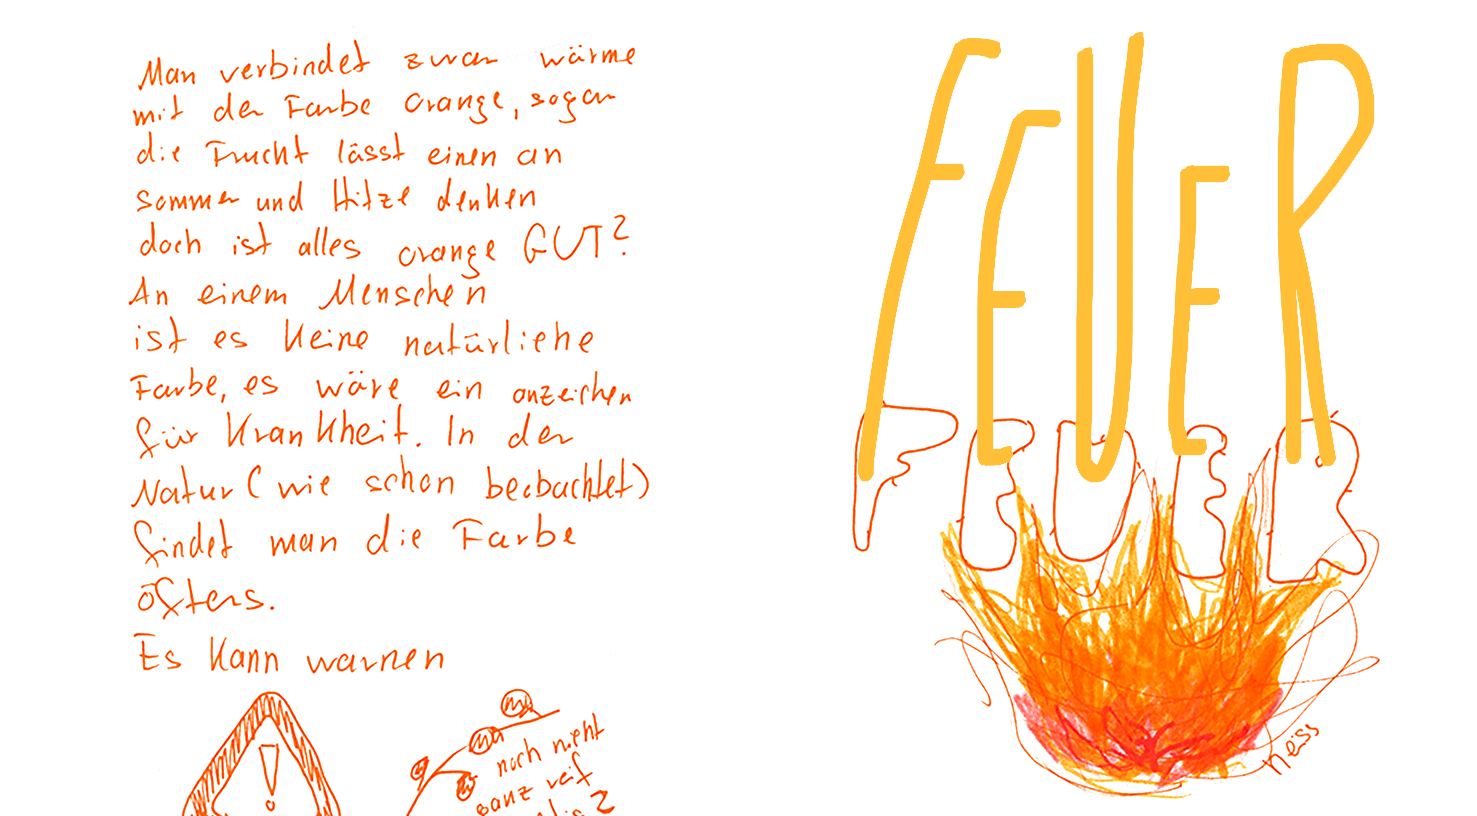 Man verbindet zwar wärme
mit der Farbe orange, sogar
die Frucht lässt einen an
sommer und Hitze denken
doch ist alles orange GUT?
An einem Menschen
ist es keine natürliche
Farbe, es wäre ein anzeichen
für Krankheit. In der
Natur (wie schon beobachtet)
findet man die Farbe
öfters.
Es kann warnen
!
noch nicht
ganz reif
FEUER
FEUER
heiss